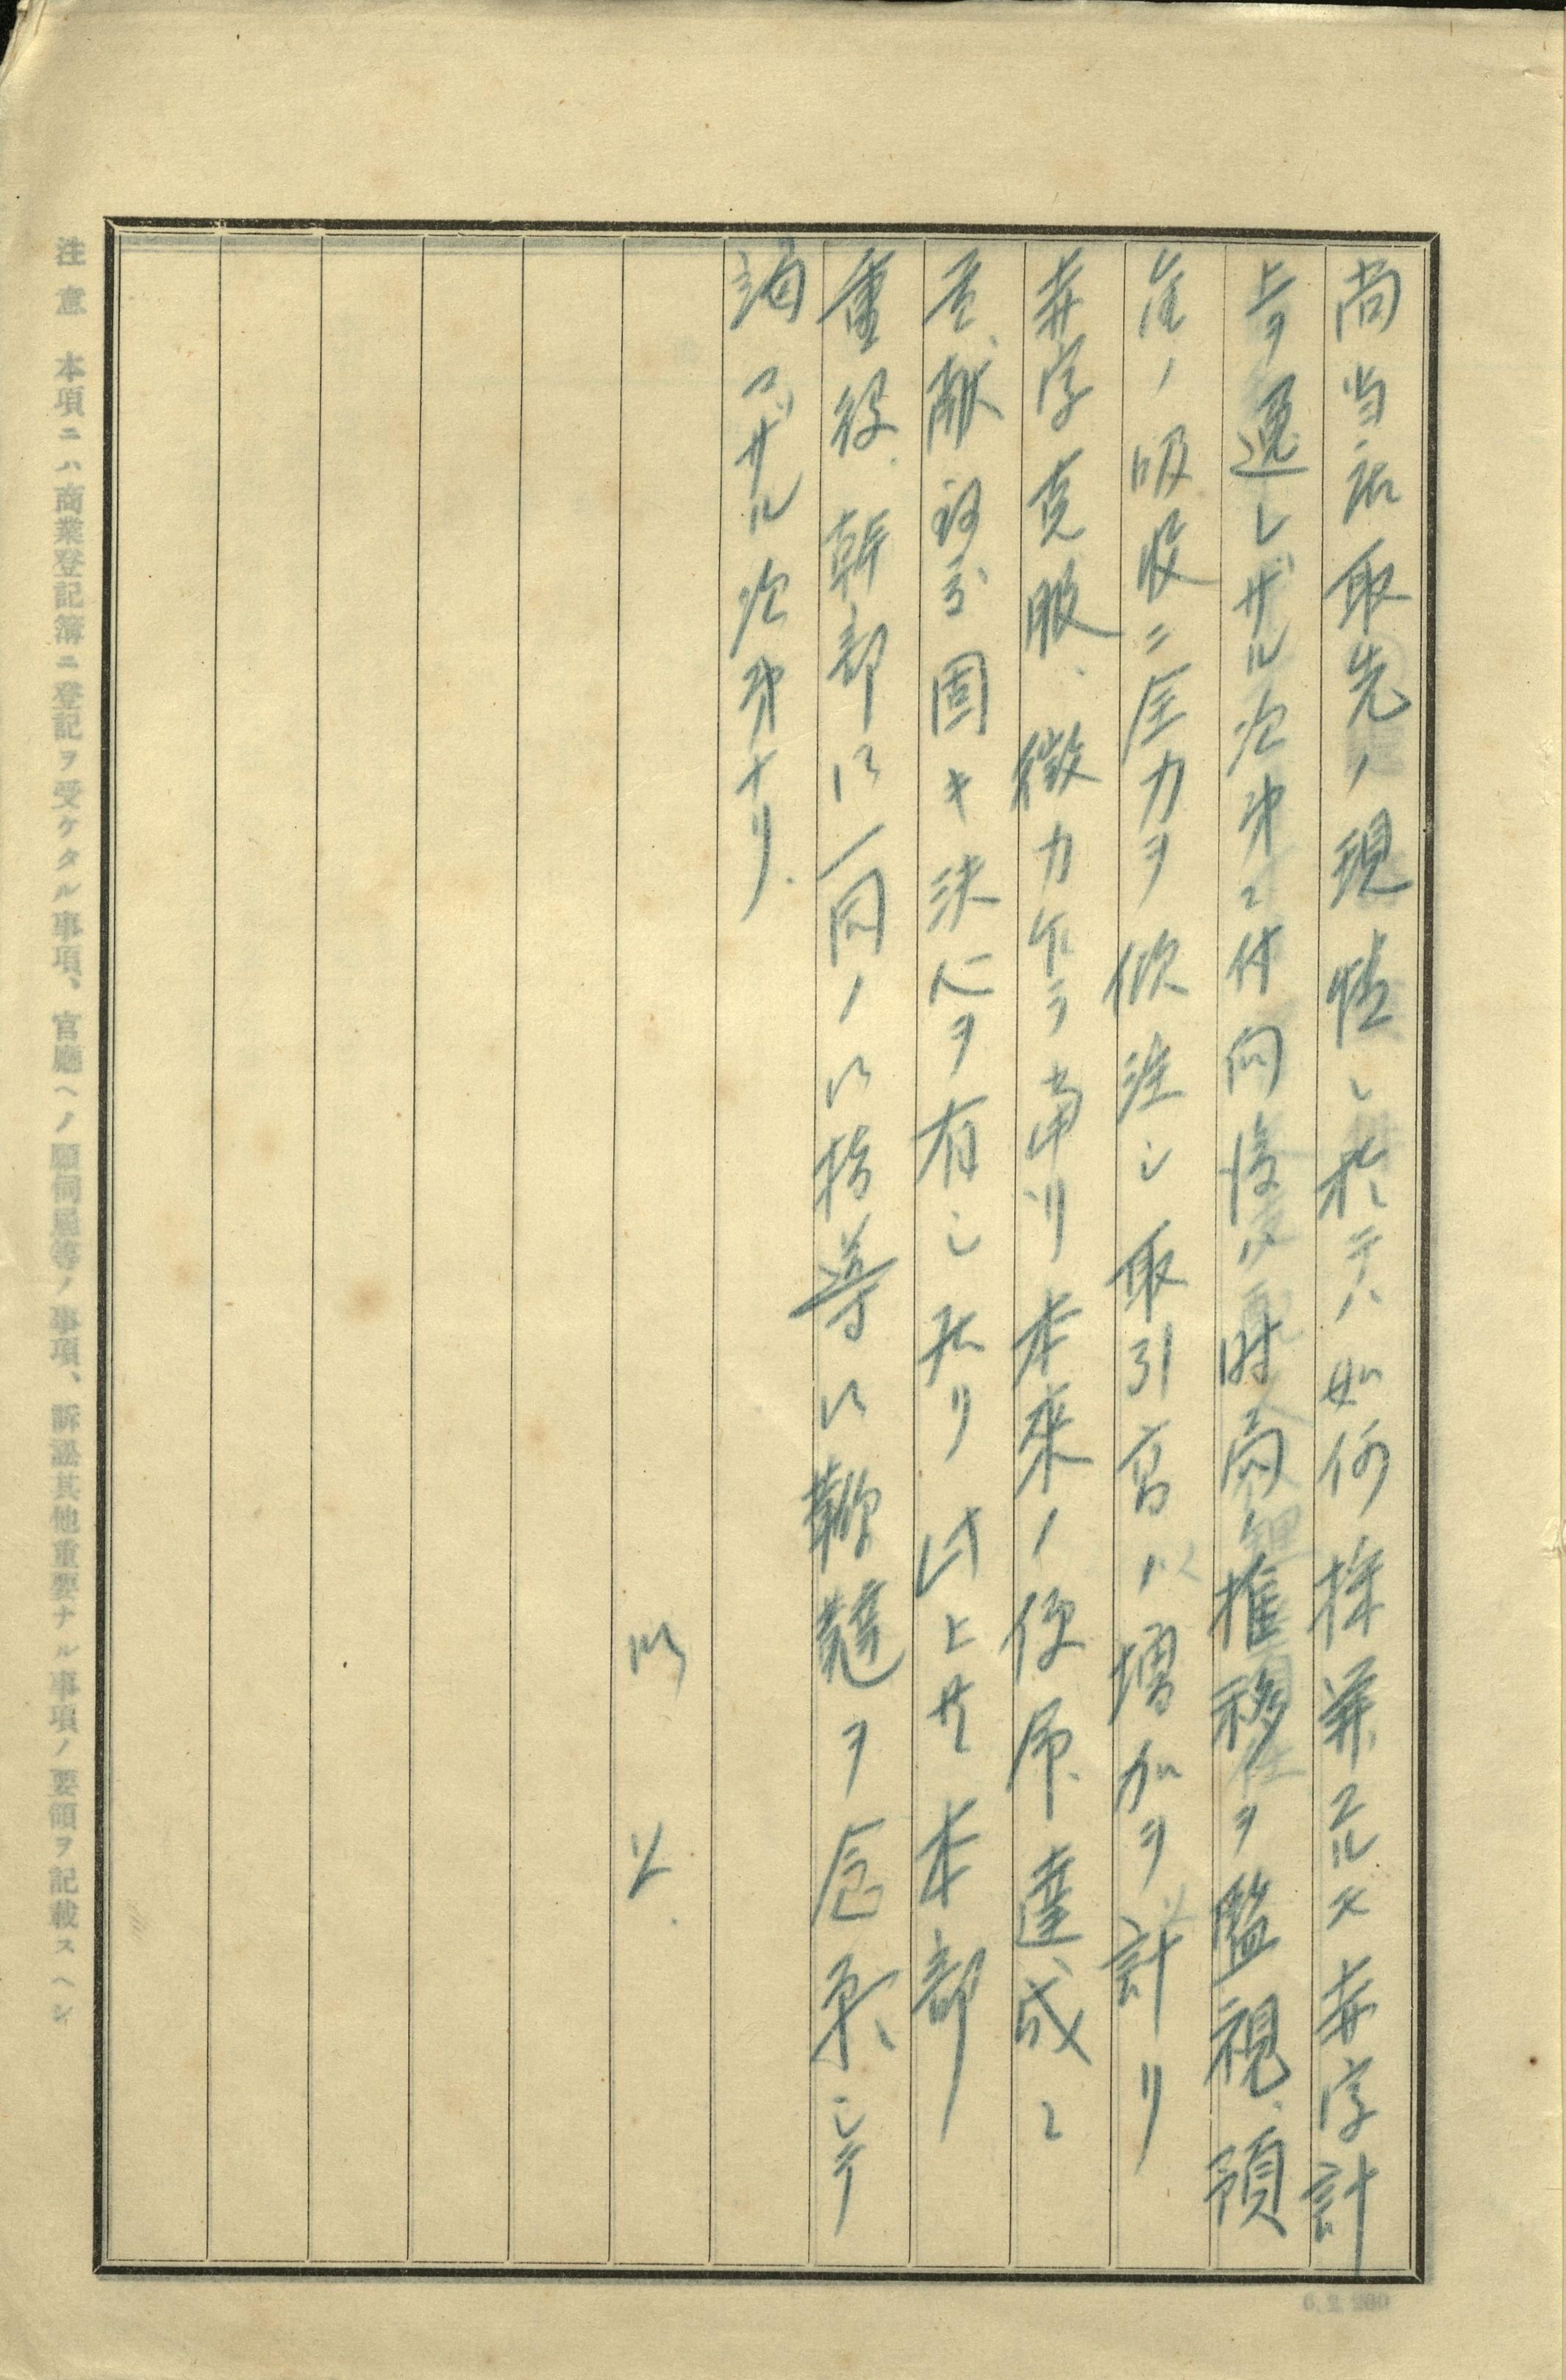 尚当店取先ノ現情ニ於テハ如何採算スルモ赤字計
上ヲ逸レザル次第ニ付向後ノ時局推移ヲ監視、預
金ノ吸収ニ全力ヲ傾注シ取引高ノ増加ヲ計リ
赤字克服、微力乍ラ当行本来ノ使命達成ニ
貢献スル固キ決心ヲ有シ居リ此上共本部
重役、幹部御一同ノ御指導御鞭韃ヲ念願シテ
止マザル次第ナリ、
以上、
注意 本項ニハ商業登記簿ニ登記ヲ受ケタル事項、官廳ヘノ願伺届等ノ事項、訴訟其他重要ナル事項ノ要領ヲ記載スヘシ